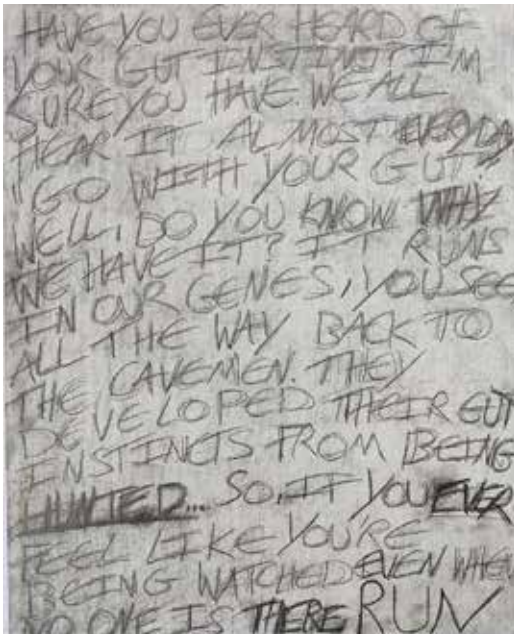 HAVE YOU EVER HEARD OF
YOUR GUT INSTINCT? I'M
SURE YOU HAVE. WE ALL
HEAR IT ALMOST EVERYDAY
"GO WITH YOUR GUT"
WELL, DO YOU KNOW WHY
WE HAVE IT? IT RUNS
IN OUR GENES, YOU SEE
ALL THE WAY BACK TO
THE CAVEMEN. THEY
DEVELOPED THEIR GUT
INSTINCTS FROM BEING
HUNTED... SO, IF YOU EVER
FEEL LIKE YOU'RE
BEING WATCHED EVEN WHEN
NO ONE IS THERE RUN